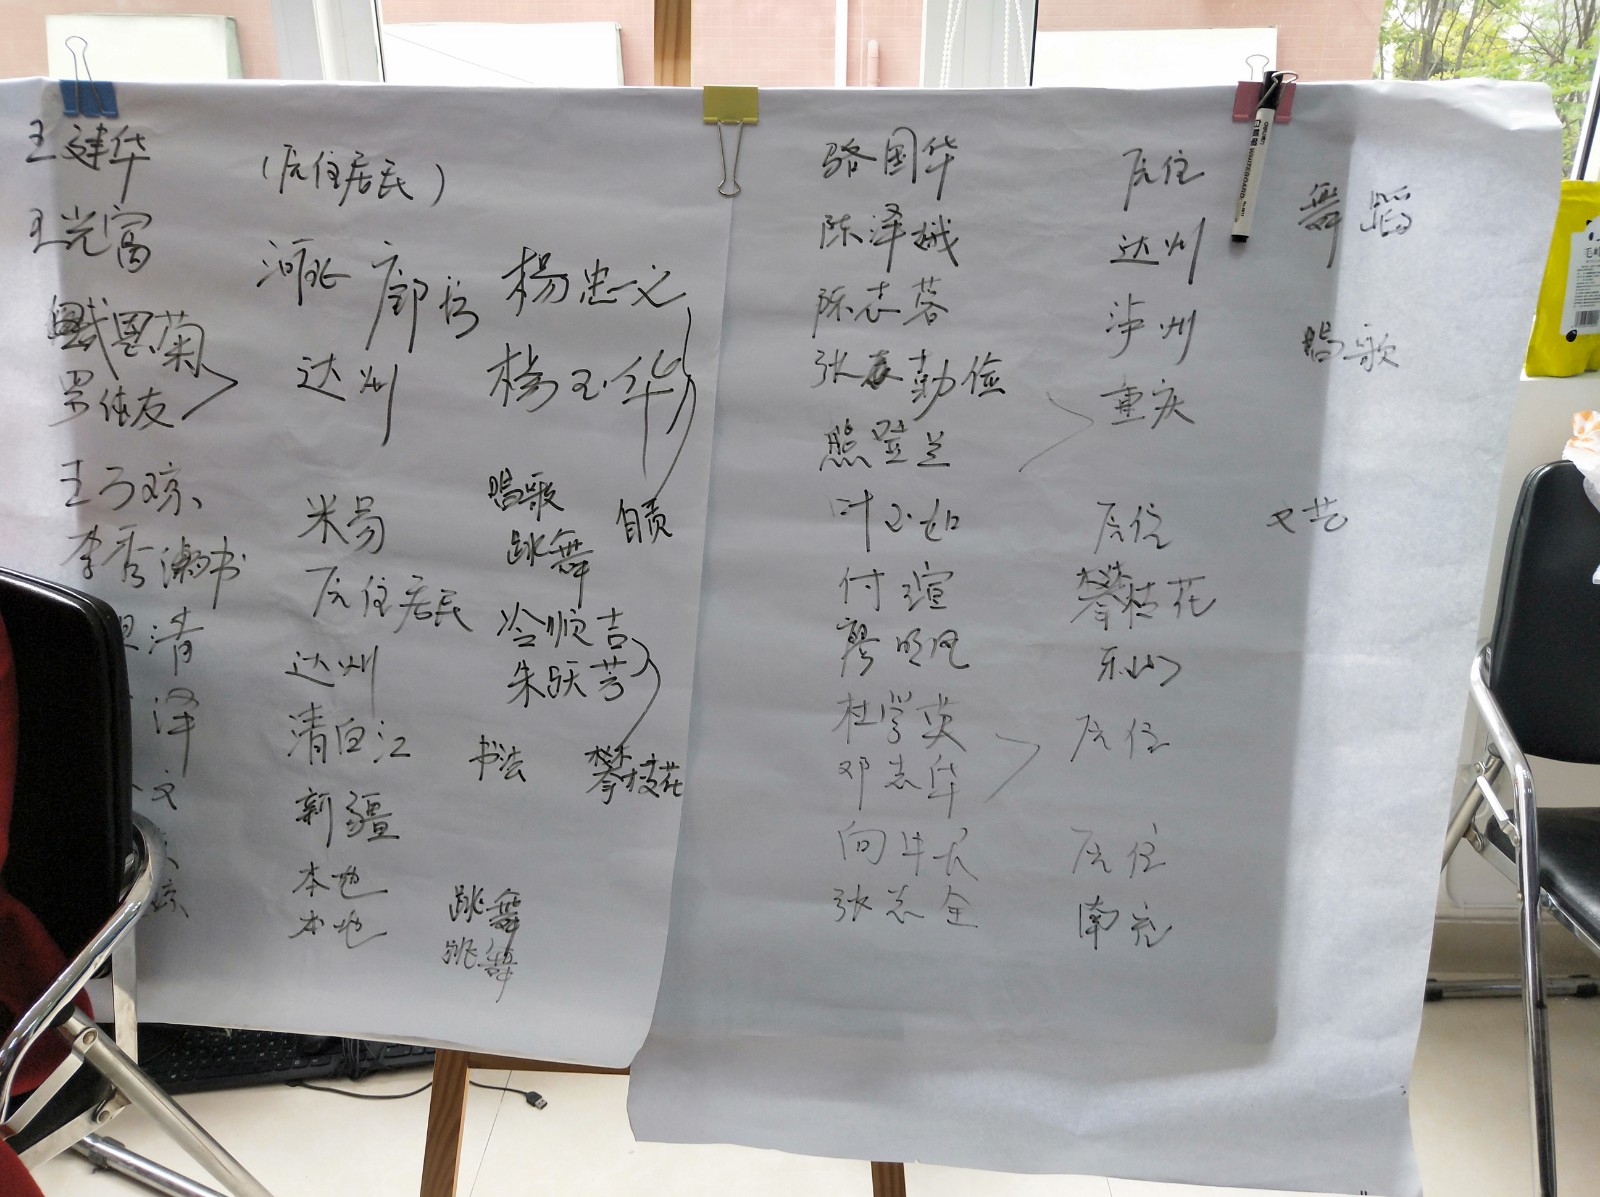 王建华
(居住居民)
王光富
河北 廊坊 杨忠义
思菊
达州 杨玉华
罗体友
王子琼
米易 唱歌
自贡
李秀 书
跳舞
居住居民 冷顺吉
清
达州 朱跃芳
泽
清白江 书法 攀枝花
文
新疆
琼
本地 跳舞
本地 跳舞
骆国华 居住
舞蹈
陈泽 达州
陈志蓉 泸州 唱歌
张 勤俭
重庆
熊 兰
叶 如 居住 文艺
付瑄 攀枝花
廖明凤 乐山
杜学英 居住
邓志华
向 居住
张志全 南充